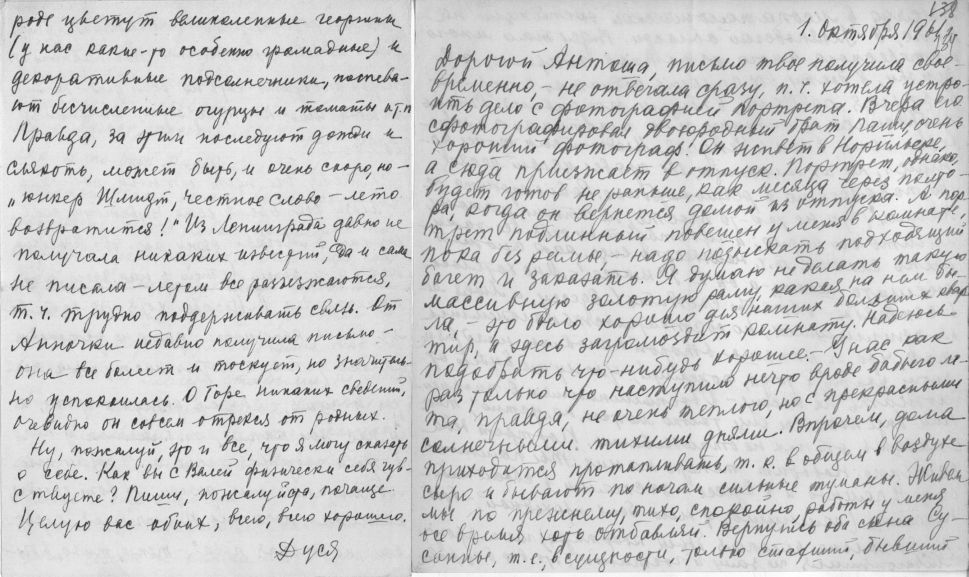 роде цветут великолепные георгины
(у нас какие-то особенно громадные) и
декоративные подсолнечники, поспева-
ют бесчисленные огурцы и томаты и т.п.
Правда, за этим последуют дожди и
слякоть, может быть, и очень скоро, но –
„юнкер Шмидт, честное слово – лето
возвратится!" Из Ленинграда давно не
получала никаких известий, да и сама
не писала – летом все разъезжаются,
т. ч. трудно поддерживать связь. От
Анночки недавно получила письмо –
она все болеет и тоскует, но значитель-
но успокоилась. О Горе никаких сведений,
очевидно он совсем отрекся от родных.
Ну, пожалуй, это и все, что я могу сказать
о себе. Как вы с Валей физически себя чув-
ствуете? Пиши, пожалуйста, почаще.
Целую вас обоих, всего, всего хорошего.
Дуся
138
1. октября 196
Дорогой Антоша, письмо твое получила свое-
временно, – не отвечала сразу, п. ч. хотела устро-
ить дело с фотографией портрета. Вчера его
сфотографировал двоюродный брат очень
хороший фотограф. Он живет в Норильске,
а сюда приезжает в отпуск. Портрет, однако,
будет готов не раньше, как месяца через полто-
ра, когда он вернется домой из отпуска. А пор-
трет подлинный повешен у меня в комнате,
пока без рамы, – надо подыскать подходящий
багет и заказать. Я думаю не делать такую
массивную золотую раму, какая на нем бы-
ла, – это было хорошо для наших больших квар-
тир, а здесь загромоздит комнату. Надеюсь
подобрать что-нибудь хорошее. – У нас как
раз только что наступило нечто вроде бабьего ле-
та, правда, не очень теплого, но с прекрасными
солнечными тихими днями. Впрочем, дома
приходится протапливать, т. к. в общем в воздухе
сыро и бывают по ночам сильные туманы. Живем
мы по прежнему, тихо, спокойно, работы у меня
все время хоть отбавляй. Вернулись оба сына Су-
санны, т. е., в сущности, только старший, бывший